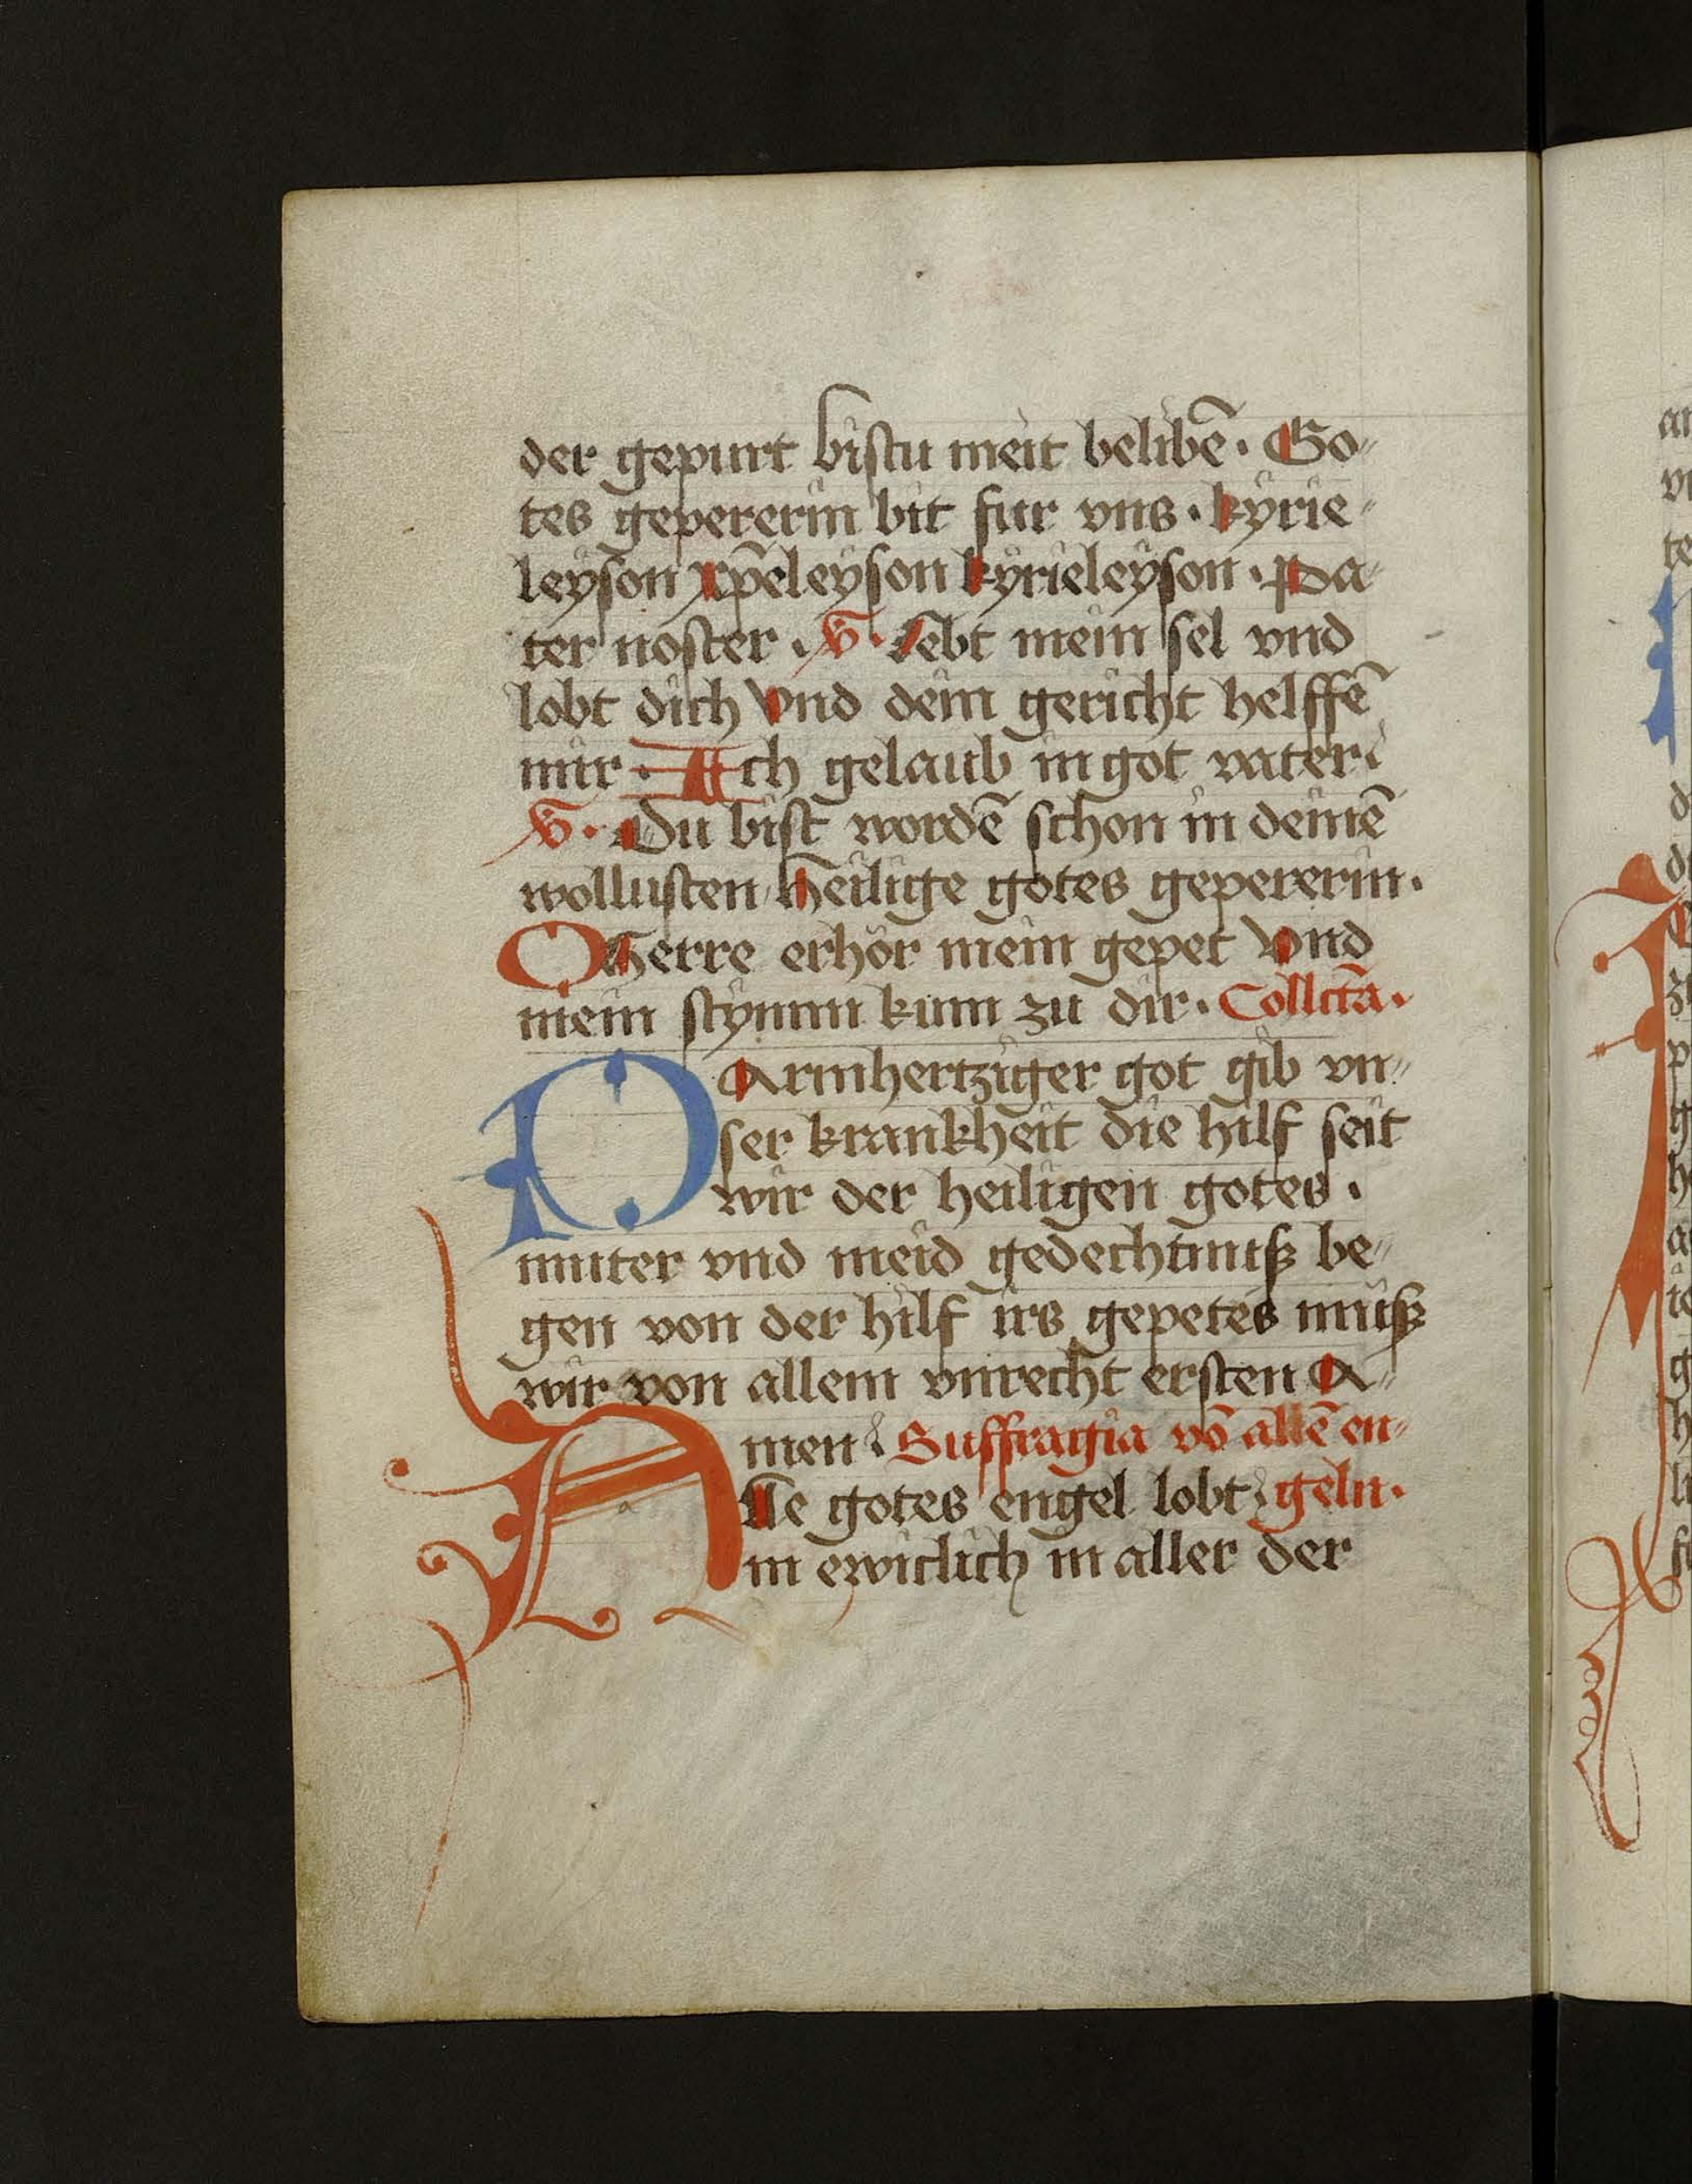 der gepurt bistu meit belibē. Go⸗
tes gepererin bit fur vns. kyrie⸗
leyson xp̄eleyson kyrieleyson. Pa⸗
ter noster. V. Lebt mein sel vnd
lobt dich Vnd dein gericht helffē
mir. Ich gelaub in got vater
V. Du bist wordē schon in deinē
wollusten heilige gotes gepererin.
O Herre erhör mein gepet Vnd
mein stymm kum zu dir. Collcta.
O Armhertziger got gib vn⸗
ser krankheit die hilf seit
wir der heiligen gotes.
muter vnd meid gedechtnuß be⸗
gen von der hilf irs gepetes müß
wir von allem vnrecht ersten A⸗
men Suffragia vō allē en⸗
Alle gotes engel lobt geln.
in ewiclich in aller der